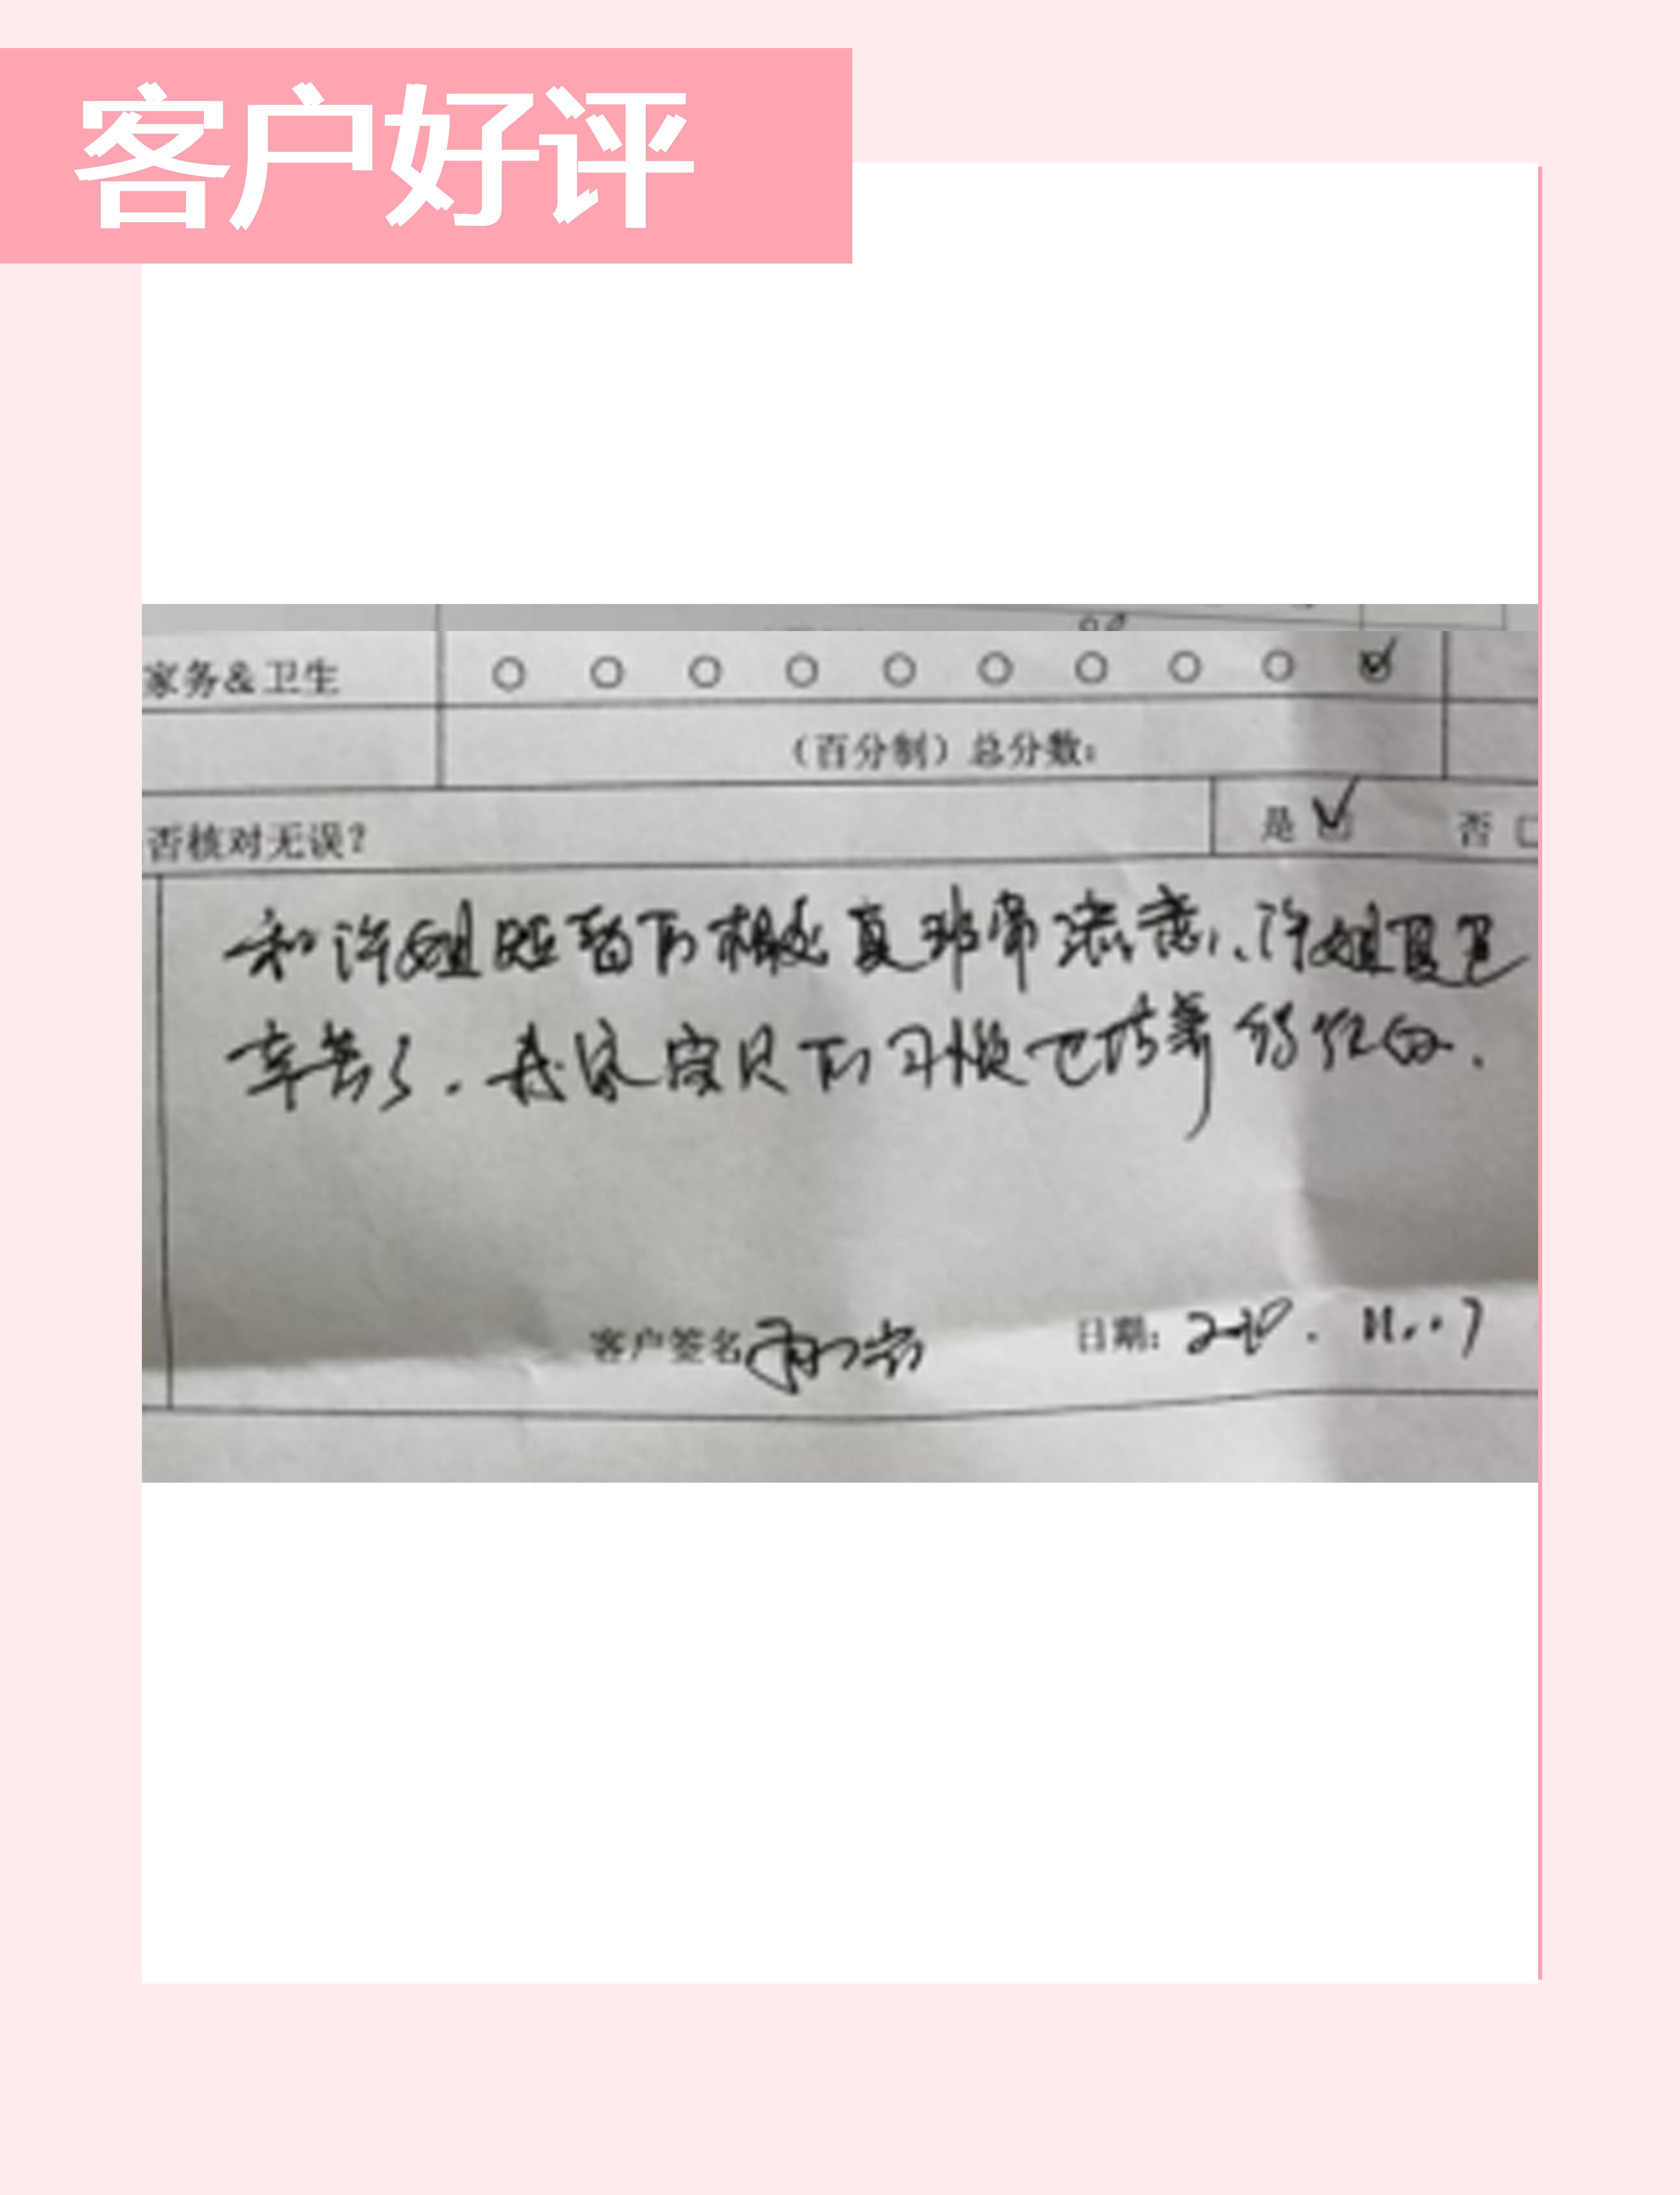 客户好评
家务&卫生
(百分制)总分数:
否核对无误?
是 否
和许姐短暂的相处真非常满意,许姐真是
辛苦了.我家宝贝的习惯也培养的很好.
客户签名
日期: 2020.11.07